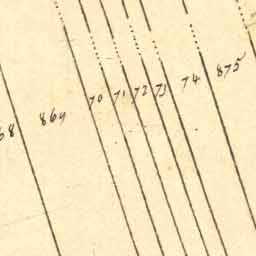 68 869 70 71 72 73 74 875